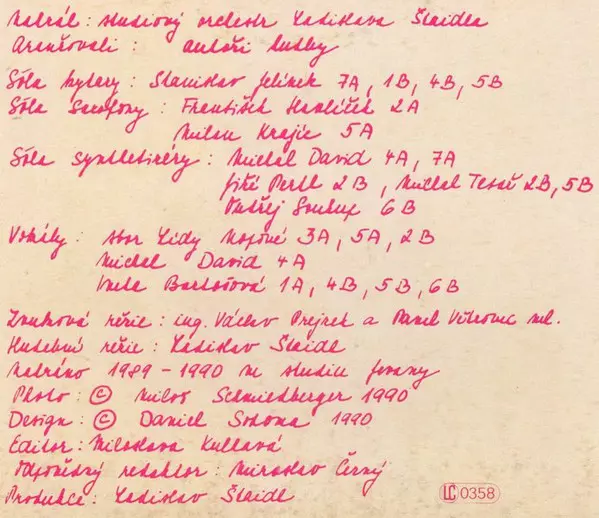 Nahrál: studiový orchestr Ladislava Štaidla
Aranžovali: autoři hudby
Sóla kytary: Stanislav Jelínek 7A, 1B, 4B, 5B
Sóla saxofony: František Havlíček 2A
Milan Krajíc 5A
Sóla syntetizéry: Michal David 4A, 7A
Jiří Pertl 2B, Michal Tesař 2B, 5B
Ondřej Soukup 6B
Vokály: sbor Lídy Nopové 3A, 5A, 2B
Michal David 4A
Bartošová 1A, 4B, 5B, 6B
Zvuková režie: ing. Václav a Pavel ml.
Hudební režie: Ladislav Štaidl
Nahráno 1989-1990 ve studiu
Photo: © Miloš Schmiedberger 1990
Design: © Daniel Sodoma 1990
Editor: Miloslava Kullavá
Odpovědný redaktor: Miroslav Černý
Produkce: Ladislav Štaidl
LC 0358